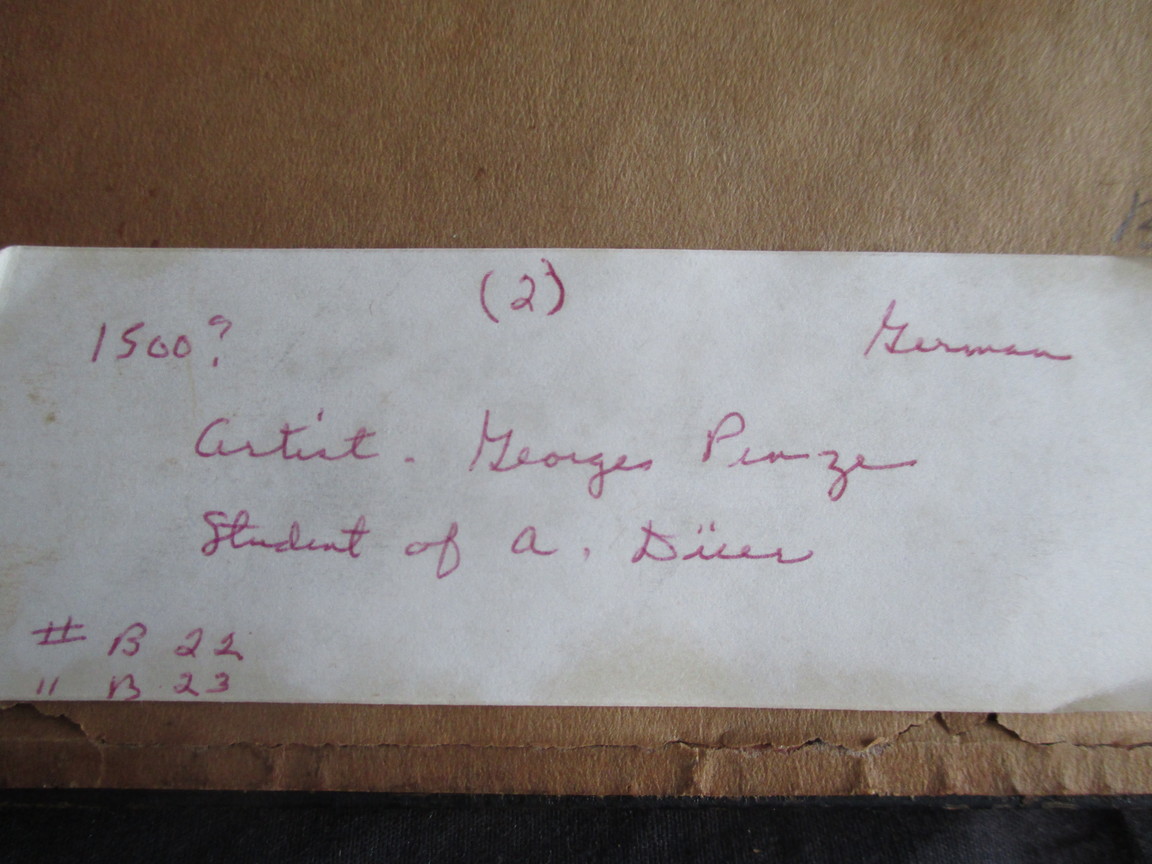 (2)
1500? German
Artist. Georges Penze
Student of A. Dürer
# B 22
" B 23